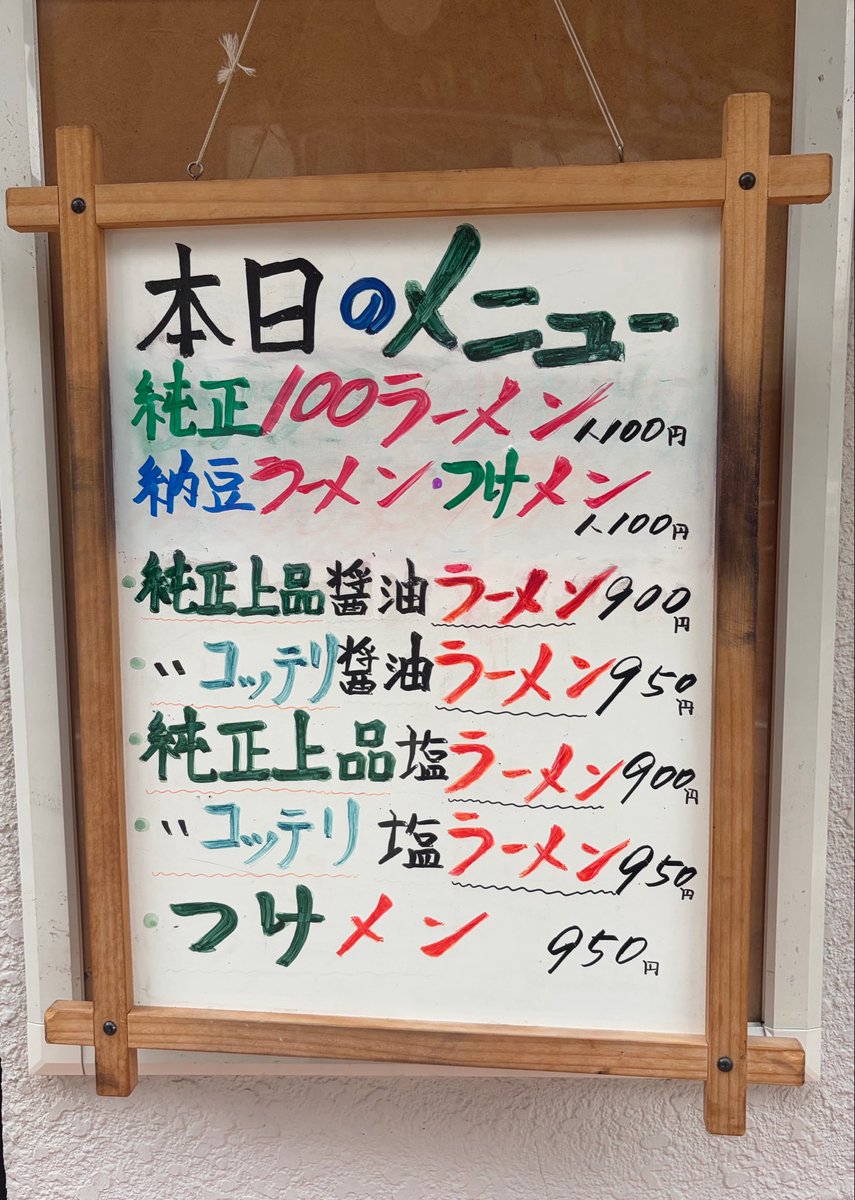 本日のメニュー
純正100ラーメン 1,100円
納豆ラーメン・つけメン
1,100円
純正上品醤油ラーメン 900円
〃コッテリ醤油ラーメン 950円
純正上品塩ラーメン 900円
〃コッテリ 塩ラーメン 950円
つけメン 950円